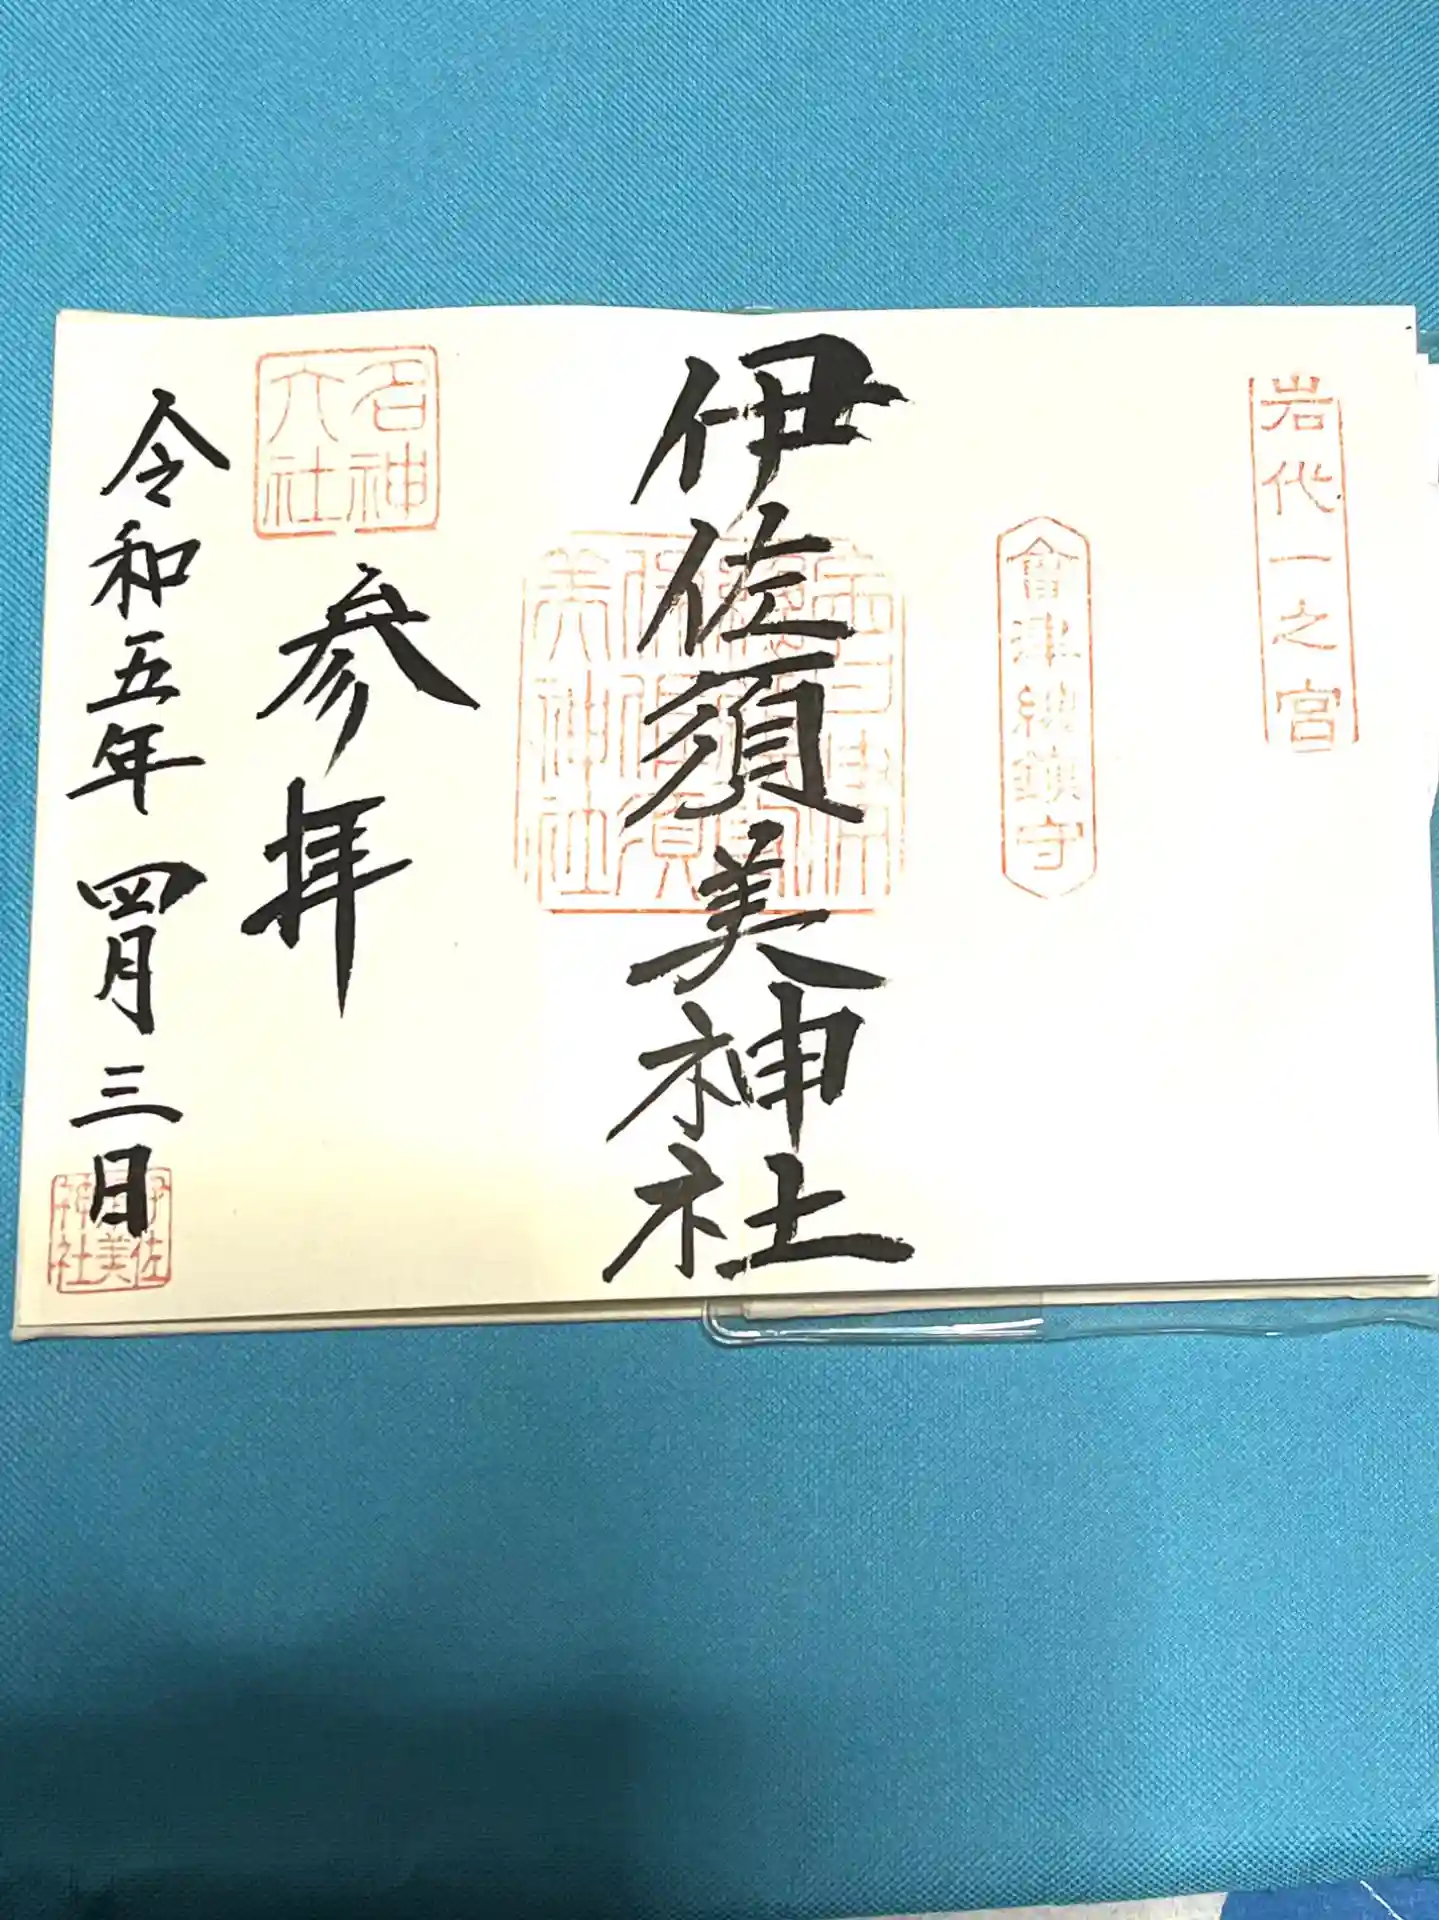 岩代一之宮
會津總鎮守
伊佐須美神社
名神
大社
参拝
令和五年四月三日
伊佐
須美
神社